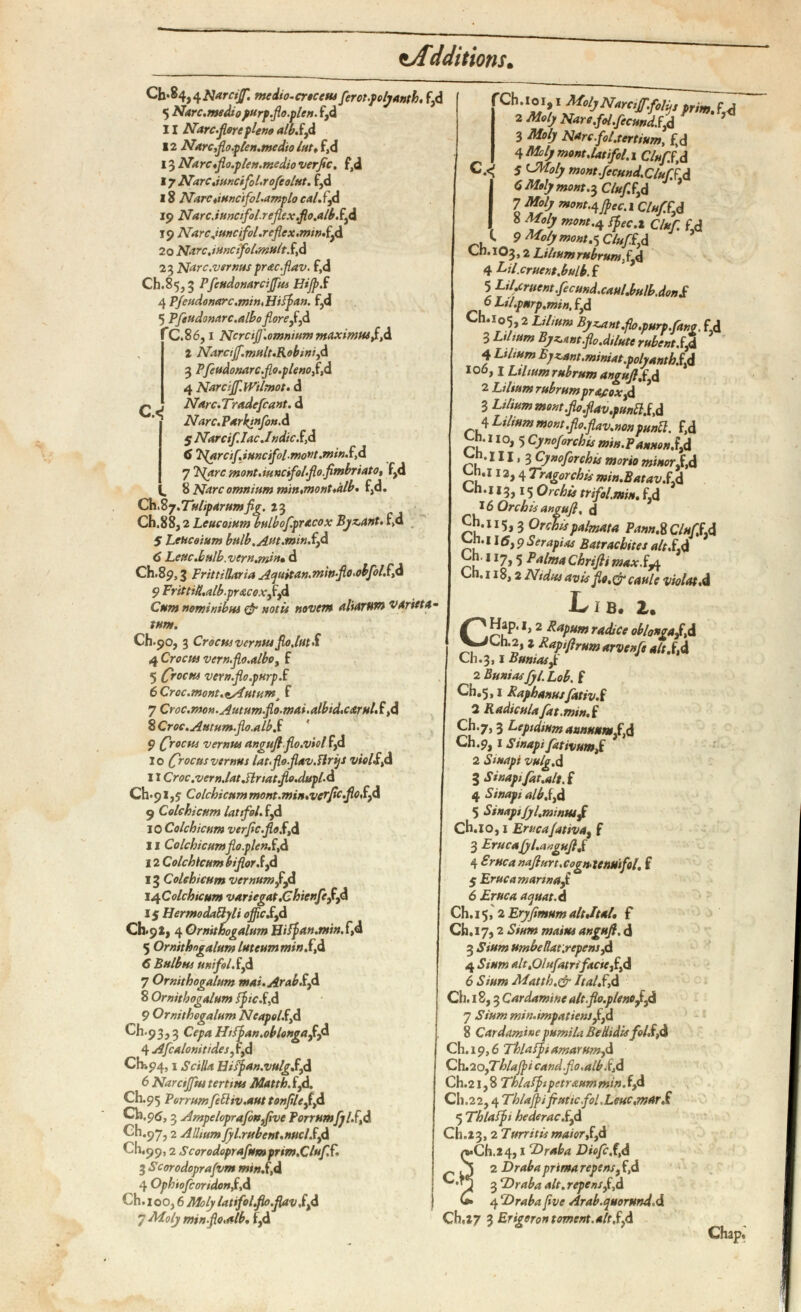 Additions.
Ch.84, 4 Narciſſ. medio-croceus ſerot.polyanth. f,d
5 Narc.medio purp.flo.plen. f,d
11 Narc.flore pleno alb.f,d
12 Narc.flo.plen.medio lut. f,d
13 Narc.flo.plen.medio verſic. f,d
17 Narc.iuncifol.roſeolut. f,d
18 Narc.iuncifol.amplo cal. f,d
19 Narc.iuncifol.reflex.flo.alb.f,d
19 Narc.iuncifol.reflex.min.f,d
20 Narc.iuncifol.mult.f,d
23 Narc.vernus præc.flav. f,d
Ch.85, 3 Pſeudonarciſſus Hiſp.f
4 Pſeudonarc.min.Hiſpan. f,d
5 Pſeudonarc.albo flore,f,d
C.
C.86, 1 Ncrciſſ.omnium maximus,f,d
2 Narciſſ.mult.Robini,d
3 Pſeudonarc.flo.pleno,f,d
4 Narciſſ.Wilmot. d
Narc.Tradeſcant. d
Narc.Parkinſon.d
5 Narciſ.Iac.Indic.f,d
6 Narciſ.iuncifol.mont.min.f,d
7 Narc mont.iuncifol.flo.fimbriato, f,d
8 Narc omnium min.mont.alb. f,d.
Ch.87. Tuliparum fig. 23
Ch.88, 2 Leucoium bulboſ.præcox Byzant. f,d
5 Leucoium bulb.Aut.min.f,d
6 Leuc.bulb.vern.min. d
Ch.89, 3 Frittillaria Aquitan.min.flo.obſol.f,d
9 Frittill.alb.præcox,f,d
Cum nominibus & notis novem aliarum varieta-
tum.
Ch.90, 3 Crocus vernus flo.lut.f
4 Crocus vern.flo.albo, f
5 Crocus vern.flo.purp.f
6 Croc.mont.Autum. f
7 Croc.mon.Autum.flo.mai.albid.cærul.f,d
8 Croc.Autum.flo.alb.f
9 Crocus vernus anguſt.flo.viol f,d
10 Crocus vernus lat.flo.flav.ſtrijs viol.f,d
11 Croc.vern.lat.ſtriat.flo.dupl.d
Ch.91, 5 Colchicum mont.min.verſic.flo.f,d
9 Colchicum latifol. f,d
10 Colchicum verſic.flo.f,d
11 Colchicum flo.plen.f,d
12 Colchicum biflor.f,d
13 Colchicum vernum,f,d
14 Colchicum variegat.Chienſe,f,d
15 Hermodactyli offic.f,d
Ch.92, 4 Ornithogalum Hiſpan.min.f,d
5 Ornithogalum luteum min.f,d
6 Bulbus unifol.f,d
7 Ornithogalum mai.Arab.f,d
8 Ornithogalum ſpic.f,d
9 Ornithogalum Neapol.f,d
Ch.93, 3 Cepa Hiſpan.oblonga,f,d
4 Aſcalonitides,f,d
Ch.94, 1 Scilla Hiſpan.vulg.f,d
6 Narciſſus tertius Matth.f,d.
Ch.95 Porrum ſectiv.aut tonſile,f,d
Ch.96, 3 Ampelopraſon,ſive Porrum ſyl.f,d
Ch.97, 2 Allium ſyl.rubent.nucl.f,d
Ch.99, 2 Scorodopraſum prim.Cluſ.f.
3 Scorodopraſum min.f,d
4 Ophioſcoridon,f,d
Ch.100, 6 Moly latifol.flo.flav.f,d
7 Moly min.flo.alb. f,d
C.
Ch.101, 1 Moly Narciſſ.folijs prim. f,d
2 Moly Narc.fol.ſecund.f,d
3 Moly Narc.fol.tertium, f,d
4 Moly mont.latifol.1 Cluſ.f,d
5 Moly mont.ſecund.Cluſ.f,d
6 Moly mont.3 Cluſ.f,d
7 Moly mont.4 ſpec.1 Cluſ.f,d
8 Moly mont.4 ſpec.2 Cluſ. f,d
9 Moly mont.5 Cluſ.f,d
Ch.103, 2 Lilium rubrum,f,d
4 Lil.cruent.bulb.f
5 Lil.cruent.ſecund.caul.bulb.don.f
6 Lil.purp.min. f,d
Ch.105, 2 Lilium Byzant.flo.purp.ſang. f,d
3 Lilium Byzant.flo.dilute rubent.f,d
4 Lilium Byzant.miniat.polyanth.f,d
106, 1 Lilium rubrum anguſt.f,d
2 Lilium rubrum præcox,d
3 Lilium mont.flo.flav.punct.f,d
4 Lilium mont.flo.flav.non punct. f,d
Ch.110, 5 Cynoſorchis min.Pannon.f,d
Ch.111, 3 Cynoſorchis morio minor,f,d
Ch.112, 4 Tragorchis min.Batav.f,d
Ch.113, 15 Orchis trifol.min. f,d
16 Orchis anguſt. d
Ch.115, 3 Orchis palmata Pann.8 Cluſ.f,d
Ch.116, 9 Serapias Batrachites alt.f,d
Ch.117, 5 Palma Chriſti max.f,d
Ch.118, 2 Nidus avis flo.& caule violat.d
LIB. 2.
CHap.1, 2 Rapum radice oblonga,f,d
Ch.2, 2 Rapiſtrum arvenſe alt.f,d
Ch.3, 1 Bunias,f
2 Bunias ſyl.Lob. f
Ch.5, 1 Raphanus ſativ.f
2 Radicula ſat.min.f
Ch.7, 3 Lepidium annuum,f,d
Ch.9, 1 Sinapi ſativum,f
2 Sinapi vulg.d
3 Sinapi ſat.alt. f
4 Sinapi alb.f,d
5 Sinapi ſyl.minus,f
Ch.10, 1 Eruca ſativa, f
3 Eruca ſyl.anguſt.f
4 Eruca naſturt.cogn.tenuifol. f
5 Eruca marina,f
6 Eruca aquat.d
Ch.15, 2 Eryſimum alt.Ital. f
Ch.17, 2 Sium maius anguſt. d
3 Sium umbellat.repens,d
4 Sium alt.Oluſatri facie,f,d
6 Sium Matth.& Ital.f,d
Ch.18, 3 Cardamine alt.flo.pleno,f,d
7 Sium min.impatiens,f,d
8 Cardamine pumila Bellidis fol.f,d
Ch.19, 6 Thlaſpi amarum,d
Ch.20, Thlaſpi cand.flo.alb.f,d
Ch.21, 8 Thlaſpi petræum min.f,d
Ch.22, 4 Thlaſpi frutic.fol.Leuc.mar.f
5 Thlaſpi hederac.f,d
Ch.23, 2 Turritis maior,f,d
C.
Ch.24, 1 Draba Dioſc.f,d
2 Draba prima repens,f,d
3 Draba alt.repens,f,d
4 Draba ſive Arab.quorund.d
Ch.27 3 Erigeron toment.alt.f,d
Chap.